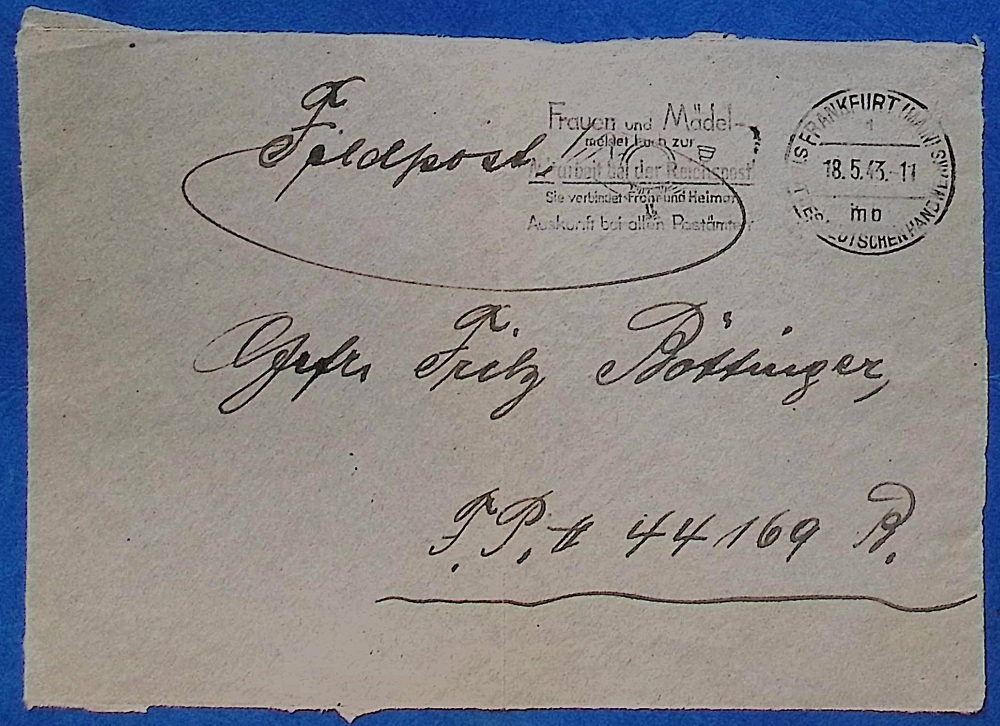 Feldpost
Frauen und Mädel-
meldet Euch zur
Mitarbeit bei der Reichspost
Sie verbindet Front und Heimat
Auskunft bei allen Postämtern
FRANKFURT (MAIN)
1
18.5.43.-11
mb
DEUTSCHEN HANDWERKS
Gefr. Fritz Böttinger,
F.P. # 44169 B.